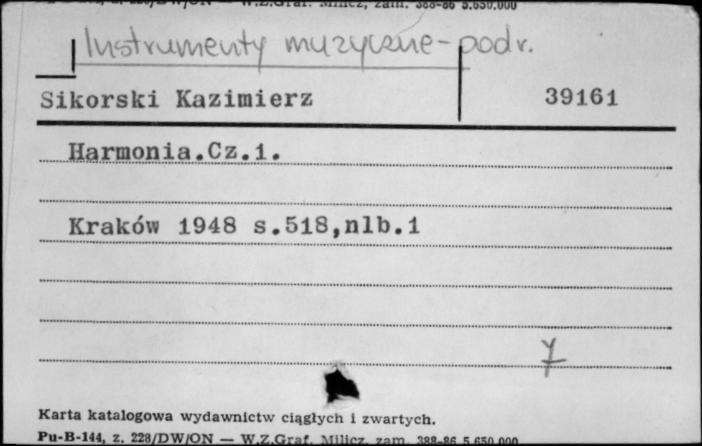 Pu-B-144, z. 228/DW/ON — W.Z.Graf. Milicz, zam. 388-86 5.650.000
Instrumenty muzyczne - podr.
Sikorski Kazimierz 39161
Harmonia.Cz.1.
Kraków 1948 s.518,nlb.1
7
Karta katalogowa wydawnictw ciągłych i zwartych.
Pu-B-144, z. 228/DW/ON — W.Z.Graf. Milicz, zam. 388-86 5.650.000